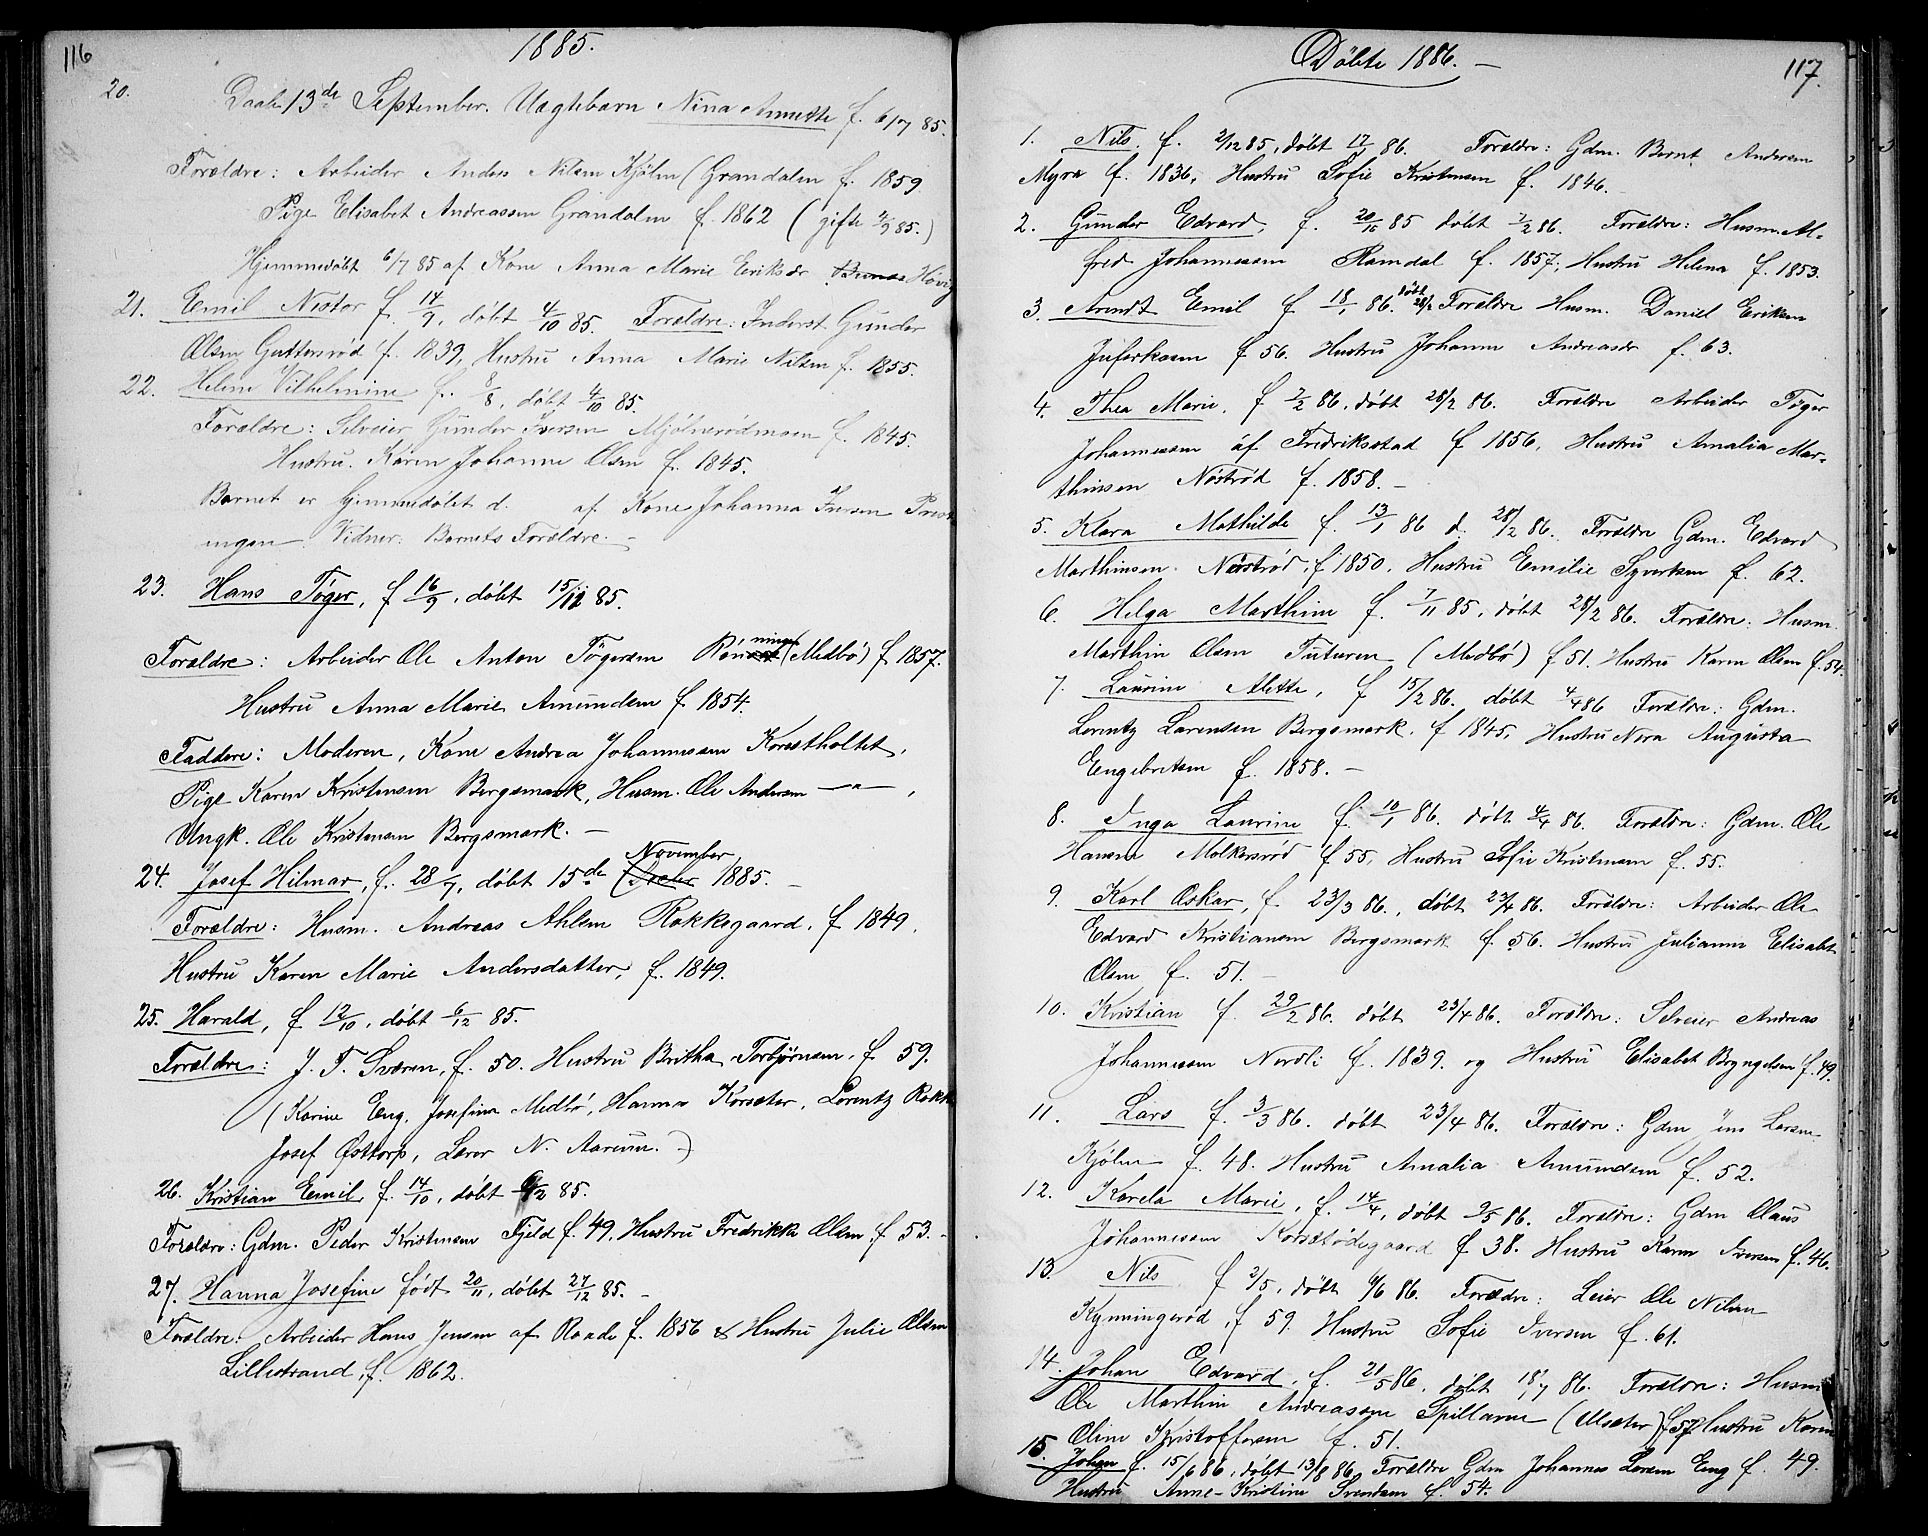 116
1885.
20.
Daab 13de September. Uægtebarn Nina Annette f. 6/7 85.
Forældre: Arbeider Anders Nilsen Kjölen (Grandalen f. 1859
Pige Elisabet Andreassen Grandalen f. 1862 (gifte 4/9 85.)
Hjemmedøbt 6/7 85 af Kone Anna Marie Eriksdr Hövig
21. Emil Nestor f. 14/9, døbt 4/10 85. Forældre: Inderst Gunder
Olsen Guttersrød f. 1839, Hustru Anna Marie Nilsen f. 1855.
22. Helene Vilhelmine f. 8/8, döbt 4/10 85.
Forældre: Selveier Gunder Iversen Mjölnerødmoen f. 1845.
Hustru. Karen Johanne Olsen f. 1845.
Barnet er hjemmedøbt d. af Kone Johanna Iversen
ungen. Vidner: Barnets Forældre. -
23. Hans Töger, f 16/9, döbt 15/11 85.
Forældre: Arbeider Ole Anton Tögersen Rönningen (Medbö) f 1857.
Hustru Anna Marie Amundsen f 1854.
Faddere: Moderen, Kone Andrea Johannessen Korsetholtet,
Pige Karen Kristensen Bergsmark, Husm. Ole Andersen —"— ,
Ungk. Ole Kristensen Bergsmark. -
24. Josef Hilmar, f. 28/7, döbt 15de November 1885. -
Forældre: Husm. Andreas Ahlsen Rokkegaard, f 1849.
Hustru Karen Marie Andersdatter, f. 1849.
25. Harald, f 12/10, döbt 6/12 85.
Forældre: J. T. Sværen, f. 50. Hustru Britha Torbjörnsen, f 59.
(Karine Eng, Josefine Medbö, Hanna Korseter, Lorentz Rokke
Josef Østtorp, Lærer N. Aarum.)
26. Kristian Emil f. 14/10, döbt 6/12 85.
Forældre: Gdm. Peder Kristensen Fjeld f. 49, Hustru Fredrikke Olsen f 53. -
27. Hanna Josefine født 20/11, döbt 27/12 85. -
Forældre: Arbeider Hans Jensen af Raade f. 1856 & Hustru Julie Olsen
Lillestrand, f. 1862.
Döbte 1886. -
117.
1. Nils. f. 2/12 85, döbt 17/1 86. Forældre: Gdm. Bernt Andersen
Myra f. 1836, Hustru Sofie Kristensen f. 1846.
2. Gunder Edvard, f. 20/10 85 döbt 7/2 86. Forældre: Husm. Al-
fred Johannessen Ramdal f. 1857; Hustru Helena f. 1853.
3. Arendt Emil f 18/1 86. döbt 28/2 Forældre Husm. Daniel Eriksen
f 56. Hustru Johanne Andreasdr f. 63.
4. Thea Marie, f 7/2 86, döbt 28/2 86. Forældre Arbeider Töger
Johannessen af Fredriksstad f 1856, Hustru Amalia Mar-
thinsen Nöströd f. 1858. -
5. Klara Mathilde f. 13/1 86 d. 28/2 86. Forældre Gdm. Edvard
Marthinsen Nöströd, f 1850, Hustru Emilie Syvertsen f. 62.
6. Helga Marthine f. 7/11 85, döbt 28/2 86. Forældre: Husm.
Marthin Olsen Tuturen (Medbö) f 51. Hustru Karen Olsen f. 54.
7. Laurine Alette, f 15/2 86. döbt 4/4 86 Forældre: Gdm.
Lorentz Larensen Bergsmark, f 1845, Hustru Nora Augusta
Engebretsen f. 1858. -
8. Inga Laurine f. 10/1 86. döbt 4/4 86. Forældre: Gdm. Ole
Hansen Molkersröd f 55, Hustru Sofie Kristensen f. 55.
9. Karl Oskar, f 23/3 86., döbt 23/4 86. Forældre: Arbeider Ole
Edvard Kristiansen Bergsmark f. 56. Hustru Julianne Elisabet
Olsen f. 51. -
10. Kristian f. 29/2 86. döbt 23/4 86. Forældre: Selveier Andreas
Johannessen Nordli f. 1839. og Hustru Elisabet Bryngelsen f. 49.
11. Lars f. 3/3 86. döbt 23/4 86. Forældre: Gdm Jens Larsen
Kjölen f. 48. Hustru Amalia Amundsen f. 52.
12. Karela Marie, f. 14/4, döbt 9/5 86. Forældre: Gdm Olaus
Johannessen Korsetödegaard f 38. Hustru Karen Iversen f. 46.
13. Nils f 2/5, döbt 6/6 86. Forældre: Leier Ole Nilsen
Kynningeröd, f 59. Hustru Sofie Iversen f. 61.
14. Johan Edvard, f. 21/5 86, döbt 18/7 86. Forældre: Husm
Ole Marthin Andreassen Spillarne (Ulsæter) f 57 Hustru Karen
Oline Kristoffersen f. 51.
15. Johan f. 15/6 86, döbt 13/8 86. Forældre Gdm Johannes Larsen Eng f. 49.
Hustru Anne-Kristine Svendsen f. 54.